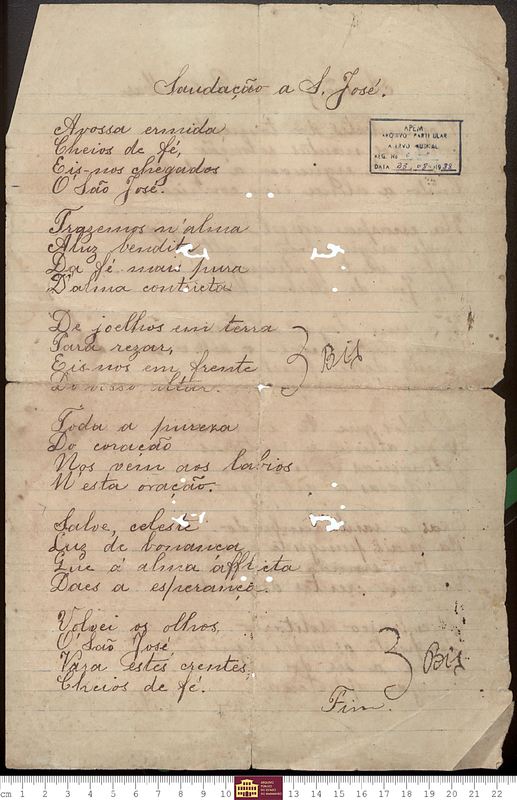 Saudação a S. José.
APEM
ARQUIVO PARTICULAR
ACERVO MUSICAL
REG. No
DATA 23.05.1988
Avossa ermida
Cheios de fé,
Eis-nos chegados
O São José.
Trazemos n'alma
A luz bendita
Da fé mais pura
D'alma contricta
De joelhos em terra
Para rezar,
Eis-nos em frente
Bis
Do vosso altar.
Toda a pureza
Do coração
Nos vem aos labios
N'esta oração.
Salve, celeste
Luz de bonança
Que á alma afflicta
Daes a esperança
Volvei os olhos,
O' São José,
Para estes crentes,
Bis
Cheios de fé.
Fim.
cm 1 2 3 4 5 6 7 8 9 10 11 12 13 14 15 16 17 18 19 20 21 22
ARQUIVO
PÚBLICO
DO ESTADO
DO MARANHÃO